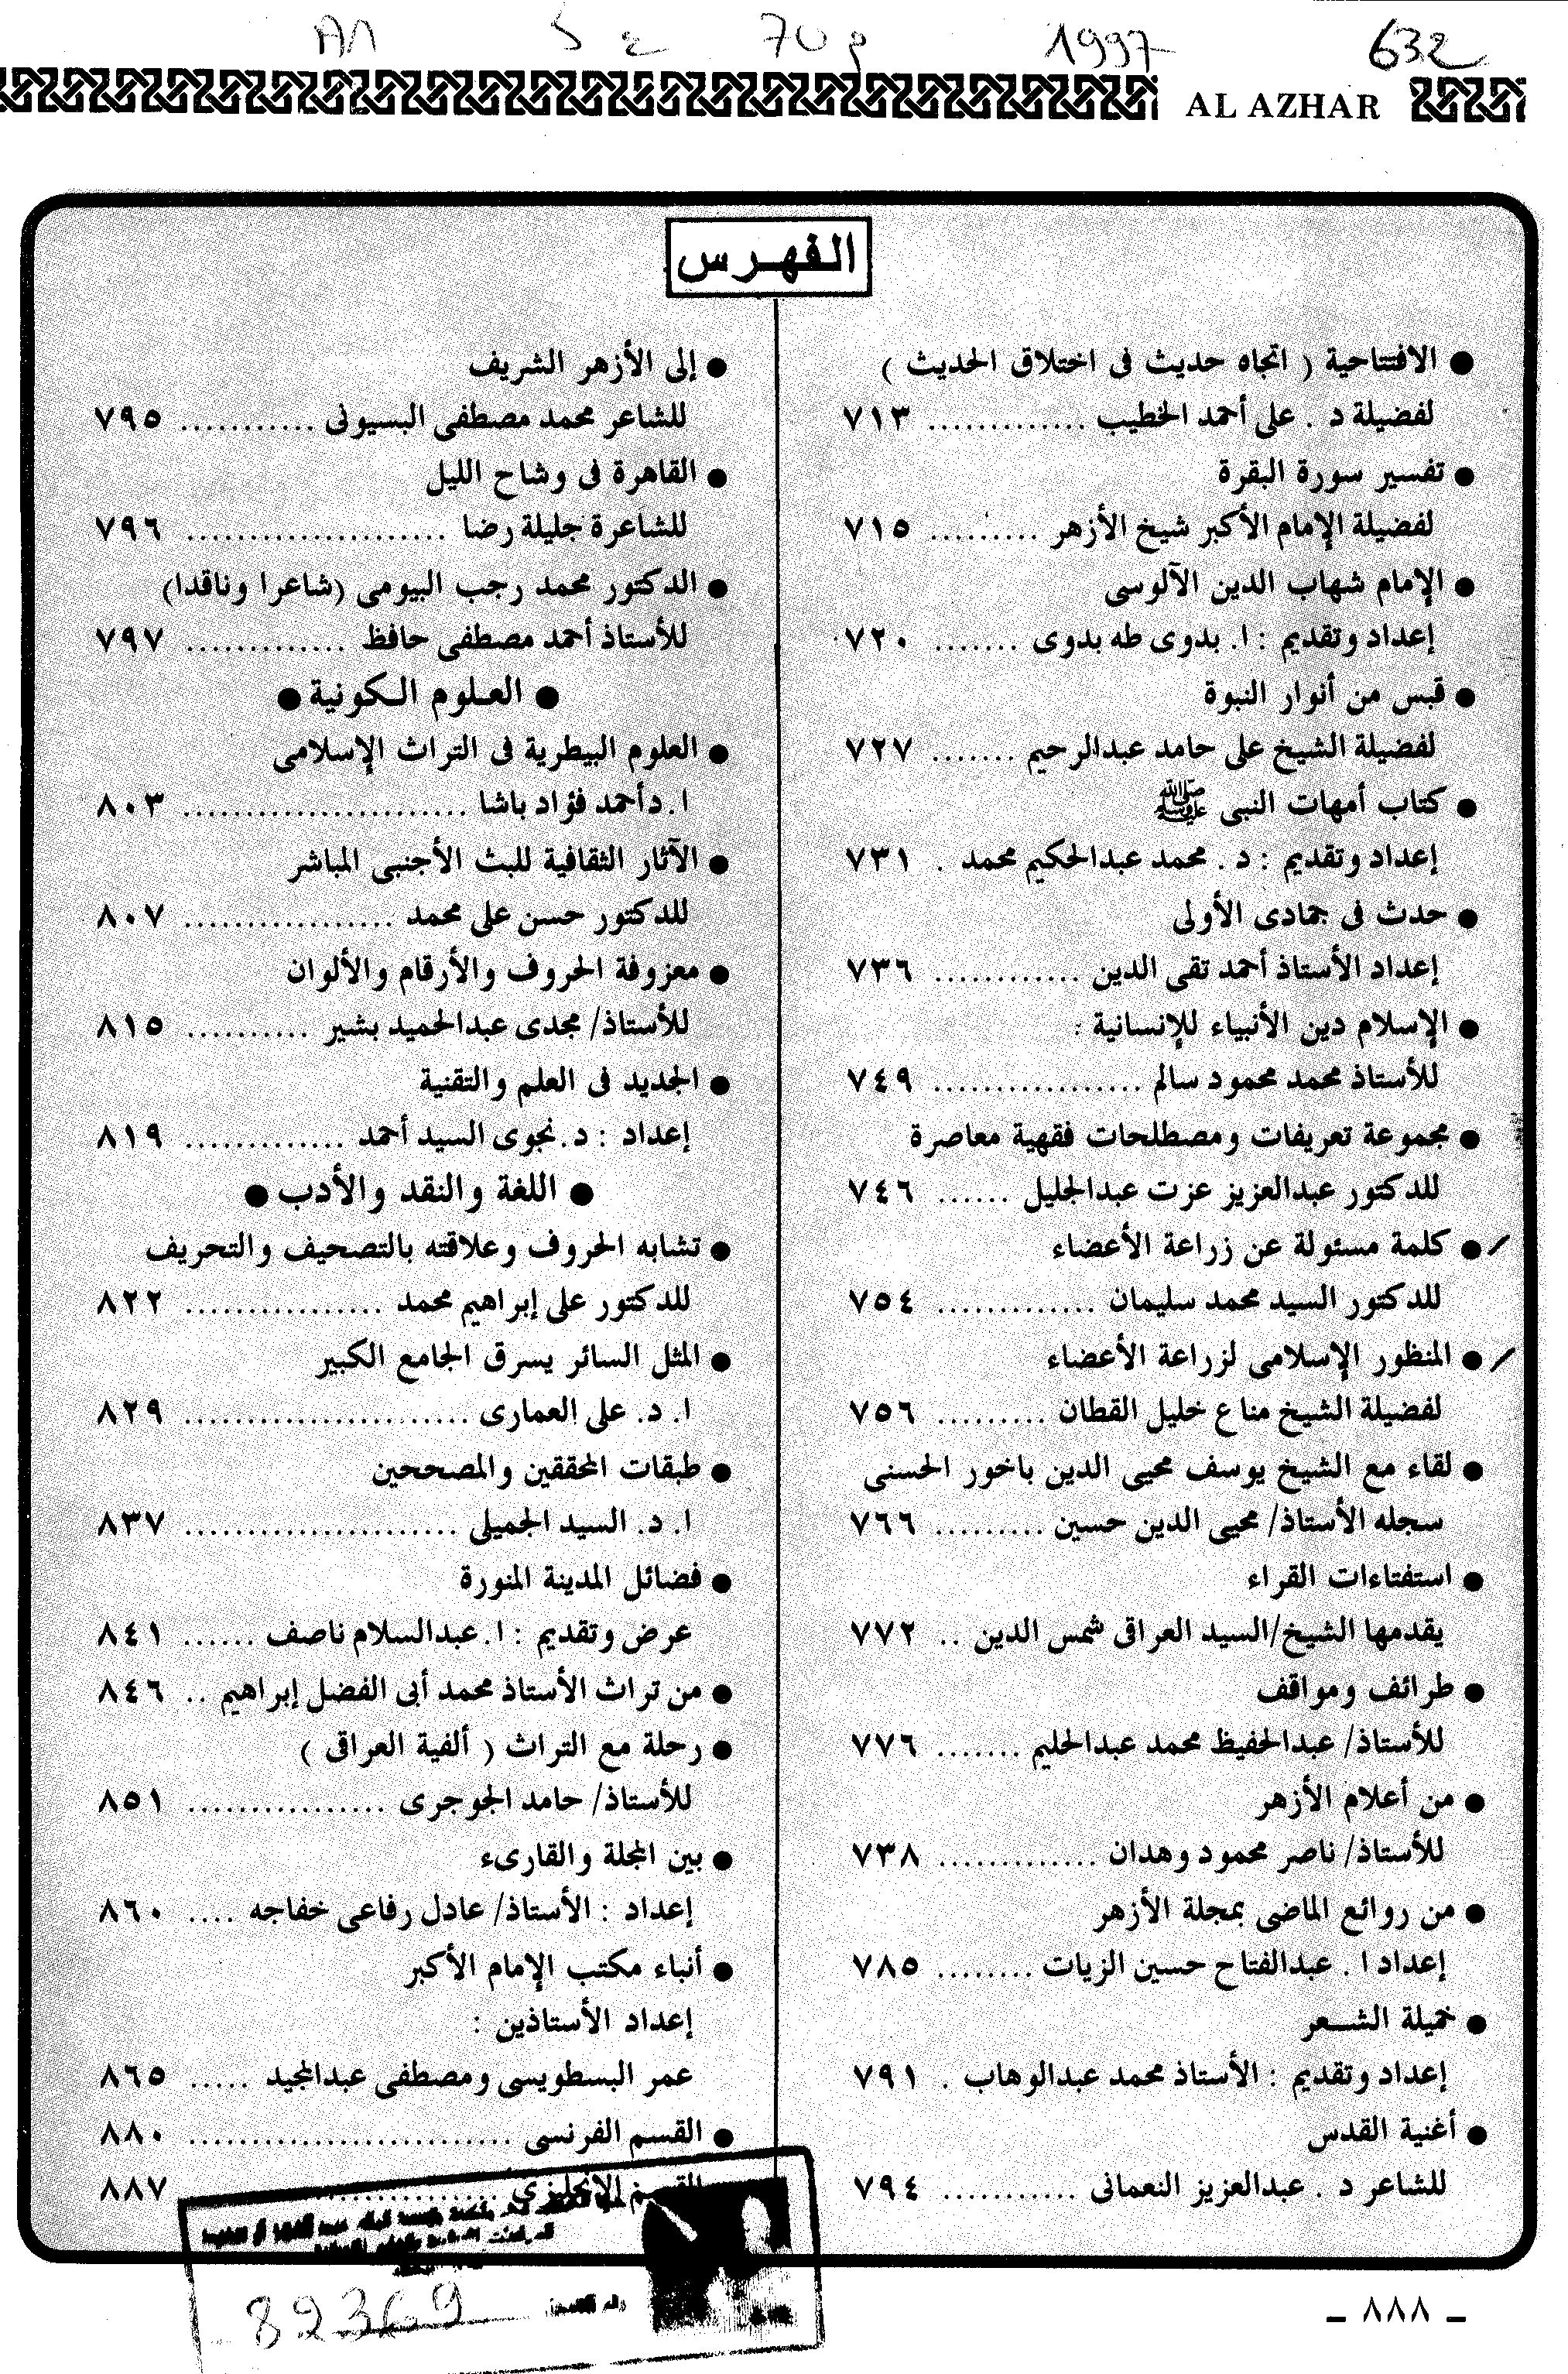 1997 632
AL AZHAR
الفهرس
● الافتتاحية ( اتجاه حديث فى اختلاق الحديث )
لفضيلة د . على أحمد الخطيب ............. ٧١٣
● تفسير سورة البقرة
لفضيلة الإمام الأكبر شيخ الأزهر ......... ٧١٥
● الإمام شهاب الدين الآلوسى
إعداد وتقديم : ا. بدوى طه بدوى ....... ٧٢٠
● قبس من أنوار النبوة
لفضيلة الشيخ على حامد عبدالرحيم ....... ٧٢٧
● كتاب أمهات النبى ﷺ
إعداد وتقديم : د . محمد عبدالحكيم محمد . ٧٣١
● حدث فى جمادى الأولى
إعداد الأستاذ أحمد تقى الدين ............ ٧٣٦
● الإسلام دين الأنبياء للإنسانية :
للأستاذ محمد محمود سالم ................. ٧٤٩
● مجموعة تعريفات ومصطلحات فقهية معاصرة
للدكتور عبدالعزيز عزت عبدالجليل ...... ٧٤٦
● كلمة مسئولة عن زراعة الأعضاء
للدكتور السيد محمد سليمان ............. ٧٥٤
● المنظور الإسلامى لزراعة الأعضاء
لفضيلة الشيخ مناع خليل القطان ......... ٧٥٦
● لقاء مع الشيخ يوسف محيى الدين باخور الحسنى
سجله الأستاذ/ محيى الدين حسين ......... ٧٦٦
● استفتاءات القراء
يقدمها الشيخ/السيد العراقى شمس الدين .. ٧٧٢
● طرائف ومواقف
للأستاذ/ عبدالحفيظ محمد عبدالحليم ....... ٧٧٦
● من أعلام الأزهر
للأستاذ/ ناصر محمود وهدان ............. ٧٣٨
● من روائع الماضى بمجلة الأزهر
إعداد ا . عبدالفتاح حسين الزيات ........ ٧٨٥
● خميلة الشــعر
إعداد وتقديم : الأستاذ محمد عبدالوهاب . ٧٩١
● أغنية القدس
للشاعر د . عبدالعزيز النعمانى ........... ٧٩٤
● إلى الأزهر الشريف
للشاعر محمد مصطفى البسيونى ........... ٧٩٥
● القاهرة فى وشاح الليل
للشاعرة جليلة رضا ..................... ٧٩٦
● الدكتور محمد رجب البيومى (شاعرا وناقدا)
للأستاذ أحمد مصطفى حافظ ............. ٧٩٧
● العلوم الكونية ●
● العلوم البيطرية فى التراث الإسلامى
ا.د أحمد فؤاد باشا ....................... ٨٠٣
● الآثار الثقافية للبث الأجنبى المباشر
للدكتور حسن على محمد ................. ٨٠٧
● معزوفة الحروف والأرقام والألوان
للأستاذ/ مجدى عبدالحميد بشير .......... ٨١٥
● الجديد فى العلم والتقنية
إعداد : د. نجوى السيد أحمد ............. ٨١٩
● اللغة والنقد والأدب ●
● تشابه الحروف وعلاقته بالتصحيف والتحريف
للدكتور على إبراهيم محمد ................ ٨٢٢
● المثل السائر يسرق الجامع الكبير
ا. د. على العمارى ....................... ٨٢٩
● طبقات المحققين والمصححين
ا. د. السيد الجميلى ...................... ٨٣٧
● فضائل المدينة المنورة
عرض وتقديم : ا. عبدالسلام ناصف ...... ٨٤١
● من تراث الأستاذ محمد أبى الفضل إبراهيم .. ٨٤٦
● رحلة مع التراث ( ألفية العراقى )
للأستاذ/ حامد الجوجرى ................ ٨٥١
● بين المجلة والقارىء
إعداد : الأستاذ/ عادل رفاعى خفاجه .... ٨٦٠
● أنباء مكتب الإمام الأكبر
إعداد الأستاذين :
عمر البسطويسى ومصطفى عبدالمجيد ..... ٨٦٥
● القسم الفرنسى .......................... ٨٨٠
القسم الإنجليزى ............... ٨٨٧
82369
ـ ٨٨٨ ـ